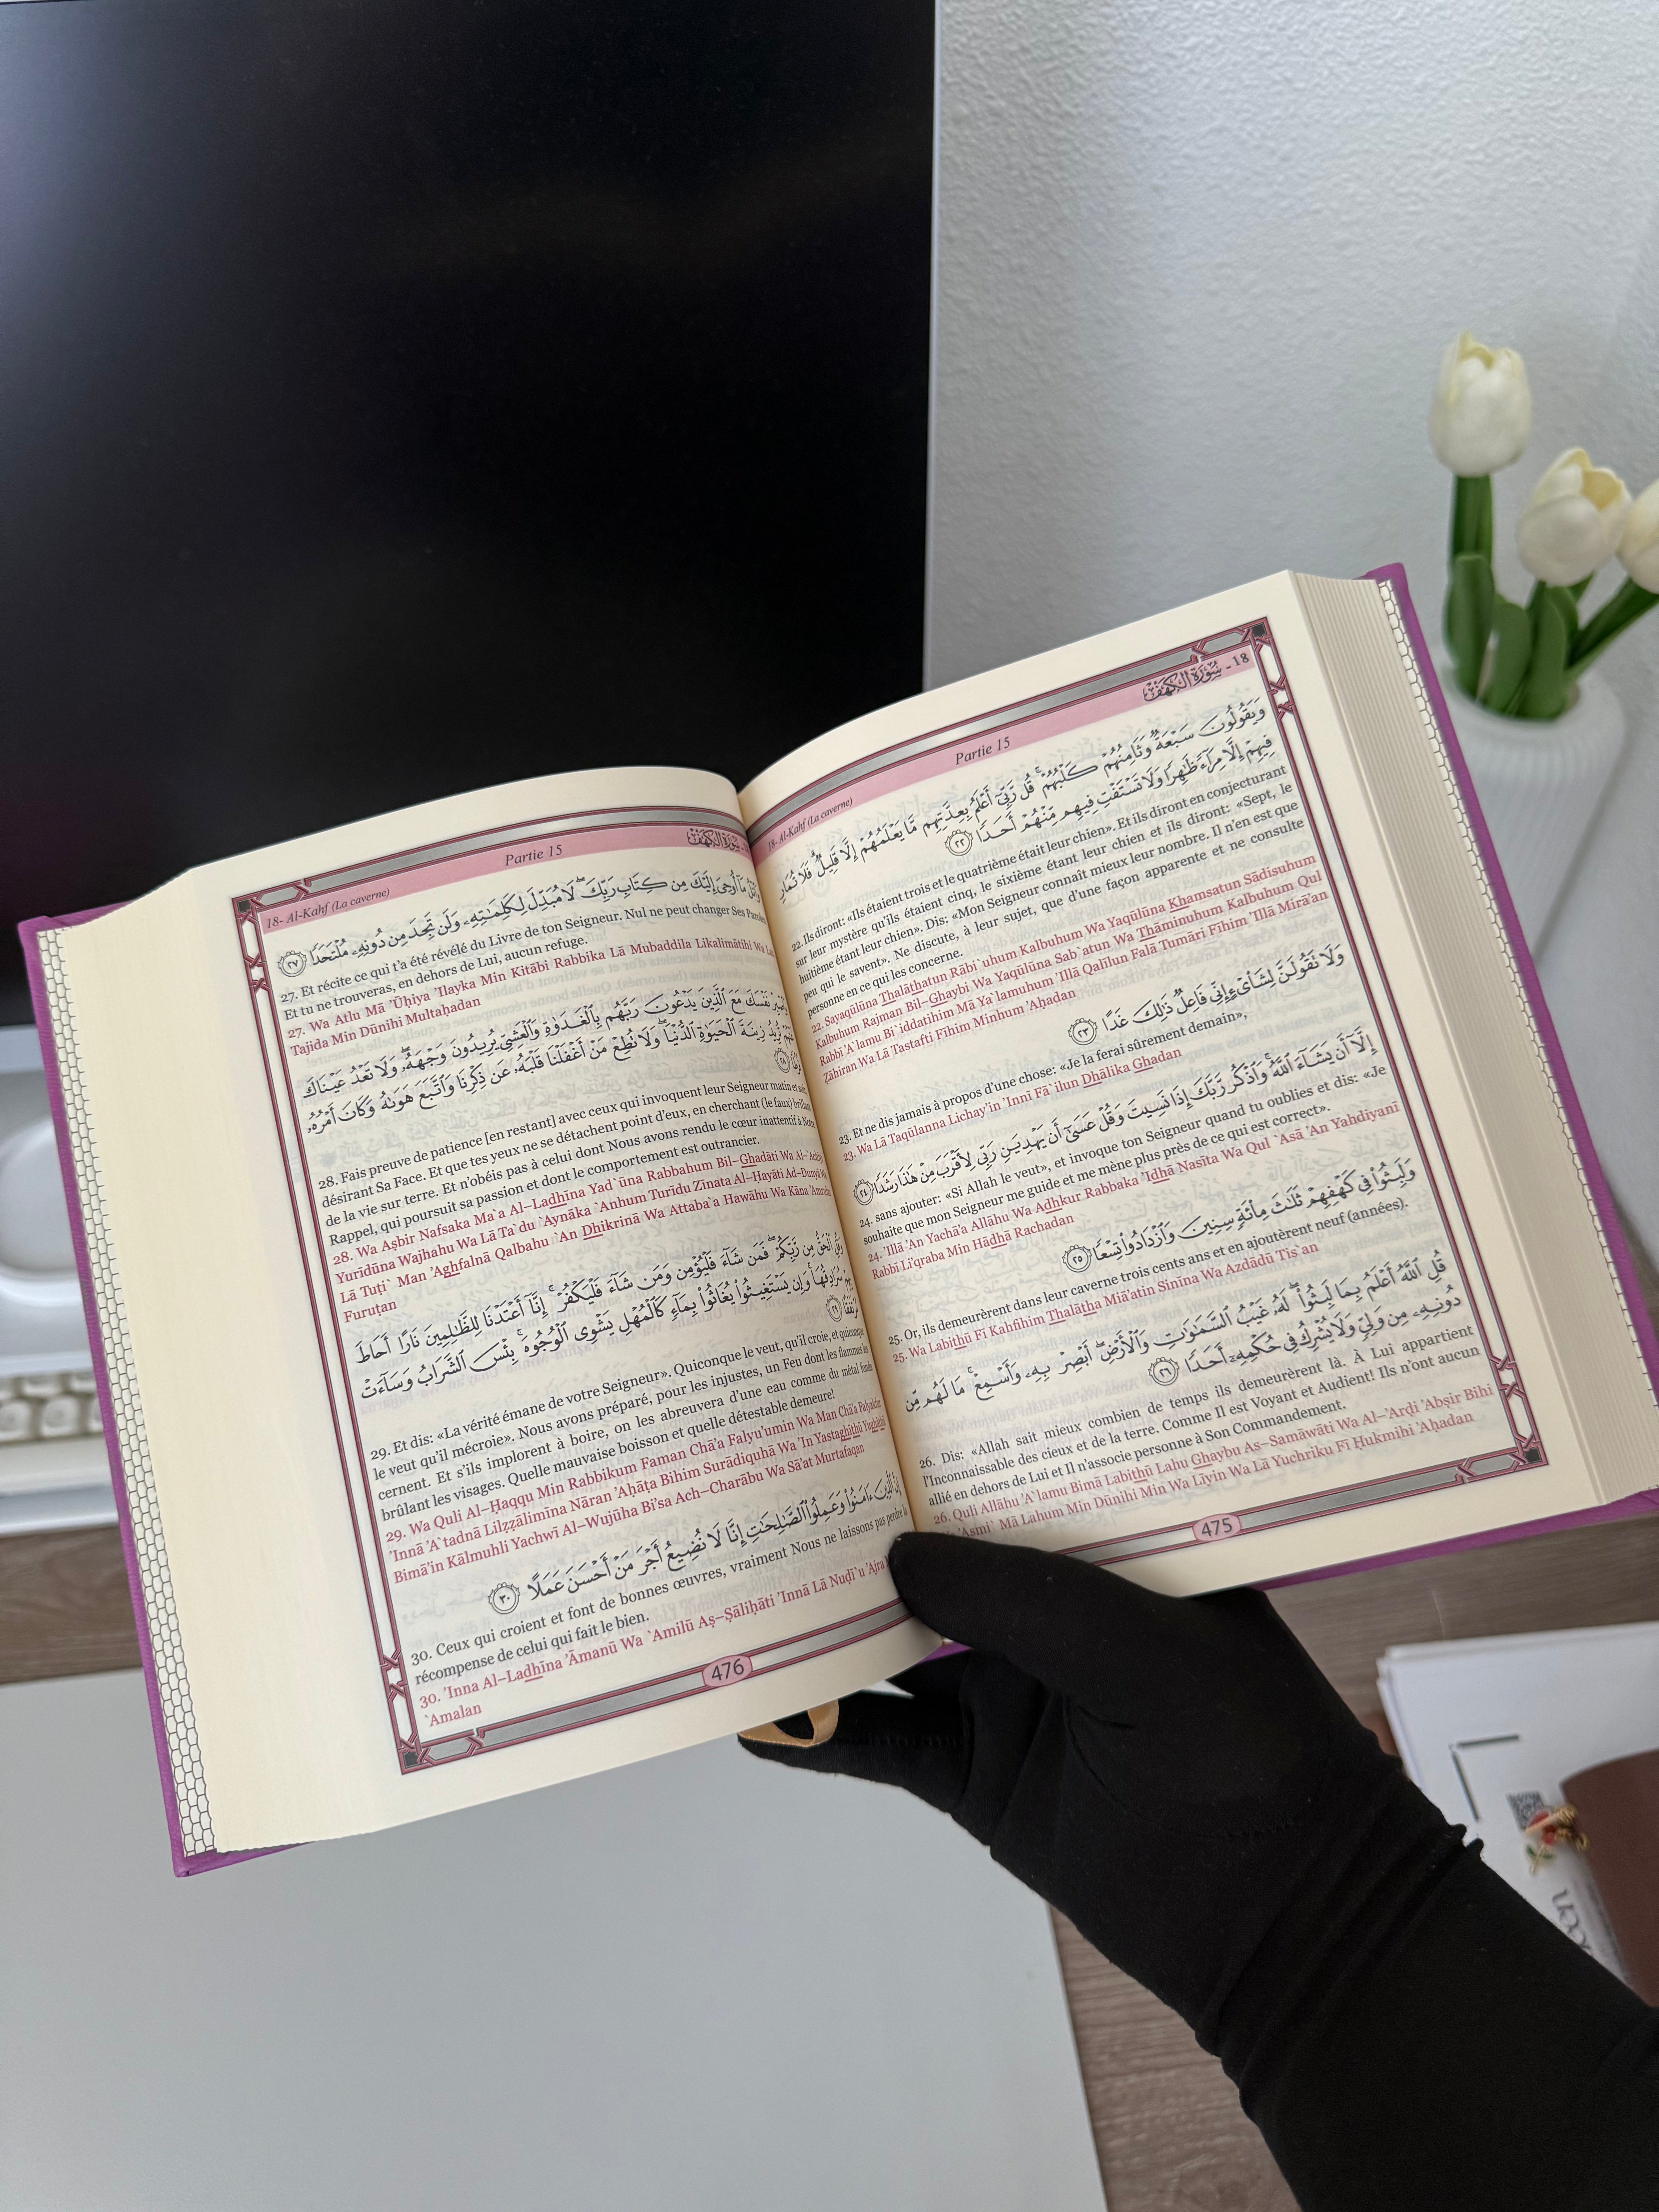 18- Al-Kahf (La caverne)
Partie 15
18 - سُورَةُ الكَهْفِ
وَيَقُولُونَ سَبْعَةٌ وَثَامِنُهُمْ كَلْبُهُمْ ۚ قُل رَّبِّىٓ أَعْلَمُ بِعِدَّتِهِم مَّا يَعْلَمُهُمْ إِلَّا قَلِيلٌ ۗ فَلَا تُمَارِ
فِيهِمْ إِلَّا مِرَآءً ظَـٰهِرًا وَلَا تَسْتَفْتِ فِيهِم مِّنْهُمْ أَحَدًا ٢٢
22. Ils diront: «Ils étaient trois et le quatrième était leur chien». Et ils diront en conjecturant
sur leur mystère qu'ils étaient cinq, le sixième étant leur chien et ils diront: «Sept, le
huitième étant leur chien». Dis: «Mon Seigneur connaît mieux leur nombre. Il n'en est que
peu qui le savent». Ne discute, à leur sujet, que d'une façon apparente et ne consulte
personne en ce qui les concerne.
22. Sayaqūlūna Thalāthatun Rābi`uhum Kalbuhum Wa Yaqūlūna Khamsatun Sādisuhum
Kalbuhum Rajman Bil–Ghaybi Wa Yaqūlūna Sab`atun Wa Thāminuhum Kalbuhum Qul
Rabbī 'A`lamu Bi`iddatihim Mā Ya`lamuhum 'Illā Qalīlun Falā Tumāri Fīhim 'Illā Mirā'an
Žāhiran Wa Lā Tastafti Fīhim Minhum 'Aĥadan
وَلَا تَقُولَنَّ لِشَا۟ىْءٍ إِنِّى فَاعِلٌ ذَٰلِكَ غَدًا ٢٣
23. Et ne dis jamais à propos d'une chose: «Je la ferai sûrement demain»,
23. Wa Lā Taqūlanna Lichay'in 'Innī Fā`ilun Dhālika Ghadan
إِلَّآ أَن يَشَآءَ ٱللَّهُ ۚ وَٱذْكُر رَّبَّكَ إِذَا نَسِيتَ وَقُلْ عَسَىٰٓ أَن يَهْدِيَنِ رَبِّى لِأَقْرَبَ مِنْ هَـٰذَا رَشَدًا ٢٤
24. sans ajouter: «Si Allah le veut», et invoque ton Seigneur quand tu oublies et dis: «Je
souhaite que mon Seigneur me guide et me mène plus près de ce qui est correct».
24. 'Illā 'An Yachā'a Allāhu Wa Adhkur Rabbaka 'Idhā Nasīta Wa Qul `Asá 'An Yahdiyanī
Rabbī Li'qraba Min Hādhā Rachadan
وَلَبِثُوا۟ فِى كَهْفِهِمْ ثَلَـٰثَ مِا۟ئَةٍ سِنِينَ وَٱزْدَادُوا۟ تِسْعًا ٢٥
25. Or, ils demeurèrent dans leur caverne trois cents ans et en ajoutèrent neuf (années).
25. Wa Labithū Fī Kahfihim Thalātha Miā'atin Sinīna Wa Azdādū Tis`an
قُلِ ٱللَّهُ أَعْلَمُ بِمَا لَبِثُوا۟ ۖ لَهُۥ غَيْبُ ٱلسَّمَـٰوَٰتِ وَٱلْأَرْضِ ۖ أَبْصِرْ بِهِۦ وَأَسْمِعْ ۚ مَا لَهُم مِّن
دُونِهِۦ مِن وَلِىٍّ وَلَا يُشْرِكُ فِى حُكْمِهِۦٓ أَحَدًا ٢٦
26. Dis: «Allah sait mieux combien de temps ils demeurèrent là. À Lui appartient
l'Inconnaissable des cieux et de la terre. Comme Il est Voyant et Audient! Ils n'ont aucun
allié en dehors de Lui et Il n'associe personne à Son Commandement.
26. Quli Allāhu 'A`lamu Bimā Labithū Lahu Ghaybu As–Samāwāti Wa Al–'Arđi 'Abşir Bihi
'Asmi` Mā Lahum Min Dūnihi Min Wa Līyin Wa Lā Yuchriku Fī Ĥukmihi 'Aĥadan
475
18- Al-Kahf (La caverne)
Partie 15
سُورَةُ الكَهْفِ
وَٱتْلُ مَآ أُوحِىَ إِلَيْكَ مِن كِتَابِ رَبِّكَ ۖ لَا مُبَدِّلَ لِكَلِمَـٰتِهِۦ وَلَن تَجِدَ مِن دُونِهِۦ مُلْتَحَدًا ٢٧
27. Et récite ce qui t'a été révélé du Livre de ton Seigneur. Nul ne peut changer Ses Paroles
Et tu ne trouveras, en dehors de Lui, aucun refuge.
27. Wa Atlu Mā 'Ūĥiya 'Ilayka Min Kitābi Rabbika Lā Mubaddila Likalimātihi Wa Lan
Tajida Min Dūnihi Multaĥadan
وَٱصْبِرْ نَفْسَكَ مَعَ ٱلَّذِينَ يَدْعُونَ رَبَّهُم بِٱلْغَدَوٰةِ وَٱلْعَشِىِّ يُرِيدُونَ وَجْهَهُۥ ۖ وَلَا تَعْدُ عَيْنَاكَ
عَنْهُمْ تُرِيدُ زِينَةَ ٱلْحَيَوٰةِ ٱلدُّنْيَا ۖ وَلَا تُطِعْ مَنْ أَغْفَلْنَا قَلْبَهُۥ عَن ذِكْرِنَا وَٱتَّبَعَ هَوَىٰهُ وَكَانَ أَمْرُهُۥ
٢٨
28. Fais preuve de patience [en restant] avec ceux qui invoquent leur Seigneur matin et soir,
désirant Sa Face. Et que tes yeux ne se détachent point d'eux, en cherchant (le faux) brillant
de la vie sur terre. Et n'obéis pas à celui dont Nous avons rendu le cœur inattentif à Notre
Rappel, qui poursuit sa passion et dont le comportement est outrancier.
28. Wa Aşbir Nafsaka Ma`a Al–Ladhīna Yad`ūna Rabbahum Bil–Ghadāati Wa Al–`Achīyi
Yurīdūna Wajhahu Wa Lā Ta`du `Aynāka `Anhum Turīdu Zīnata Al–Ĥayāti Ad–Dunyā Wa
Lā Tuţi` Man 'Aghfalnā Qalbahu `An Dhikrinā Wa Attaba`a Hawāhu Wa Kāna 'Amruhu
Furuţan
وَقُلِ ٱلْحَقُّ مِن رَّبِّكُمْ ۖ فَمَن شَآءَ فَلْيُؤْمِن وَمَن شَآءَ فَلْيَكْفُرْ ۚ إِنَّآ أَعْتَدْنَا لِلظَّـٰلِمِينَ نَارًا أَحَاطَ
بِهِمْ سُرَادِقُهَا ۚ وَإِن يَسْتَغِيثُوا۟ يُغَاثُوا۟ بِمَآءٍ كَٱلْمُهْلِ يَشْوِى ٱلْوُجُوهَ ۚ بِئْسَ ٱلشَّرَابُ وَسَآءَتْ
مُرْتَفَقًا ٢٩
29. Et dis: «La vérité émane de votre Seigneur». Quiconque le veut, qu'il croie, et quiconque
le veut qu'il mécroie». Nous avons préparé, pour les injustes, un Feu dont les flammes les
cernent. Et s'ils implorent à boire, on les abreuvera d'une eau comme du métal fondu
brûlant les visages. Quelle mauvaise boisson et quelle détestable demeure!
29. Wa Quli Al–Ĥaqqu Min Rabbikum Faman Chā'a Falyu'umin Wa Man Chā'a Falyakfur
'Innā 'A`tadnā Lilžžālimīna Nāran 'Aĥāţa Bihim Surādiquhā Wa 'In Yastaghīthū Yughāthū
Bimā'in Kālmuhli Yachwī Al–Wujūha Bi'sa Ach–Charābu Wa Sā'at Murtafaqan
إِنَّ ٱلَّذِينَ ءَامَنُوا۟ وَعَمِلُوا۟ ٱلصَّـٰلِحَـٰتِ إِنَّا لَا نُضِيعُ أَجْرَ مَنْ أَحْسَنَ عَمَلًا ٣٠
30. Ceux qui croient et font de bonnes œuvres, vraiment Nous ne laissons pas perdre la
récompense de celui qui fait le bien.
30. 'Inna Al–Ladhīna 'Āmanū Wa `Amilū Aş–Şāliĥāti 'Innā Lā Nuđī`u 'Ajra
`Amalan
476